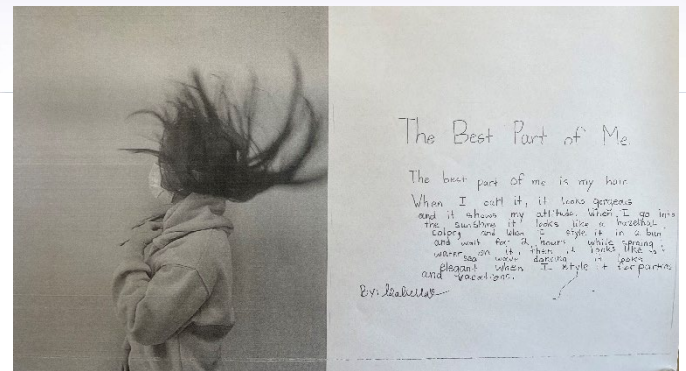 The Best Part of Me
The best part of me is my hair
When I curl it, it looks gorgeous
and it shows my attitude. When I go into
the sunshine it looks like a hazelnut
color, and when I style it in a bun
and wait for 2 hours while spraying
water on it, then it looks like a
sea wave dancing. it looks
Elegant when I style it for parties
and vacations.
By: